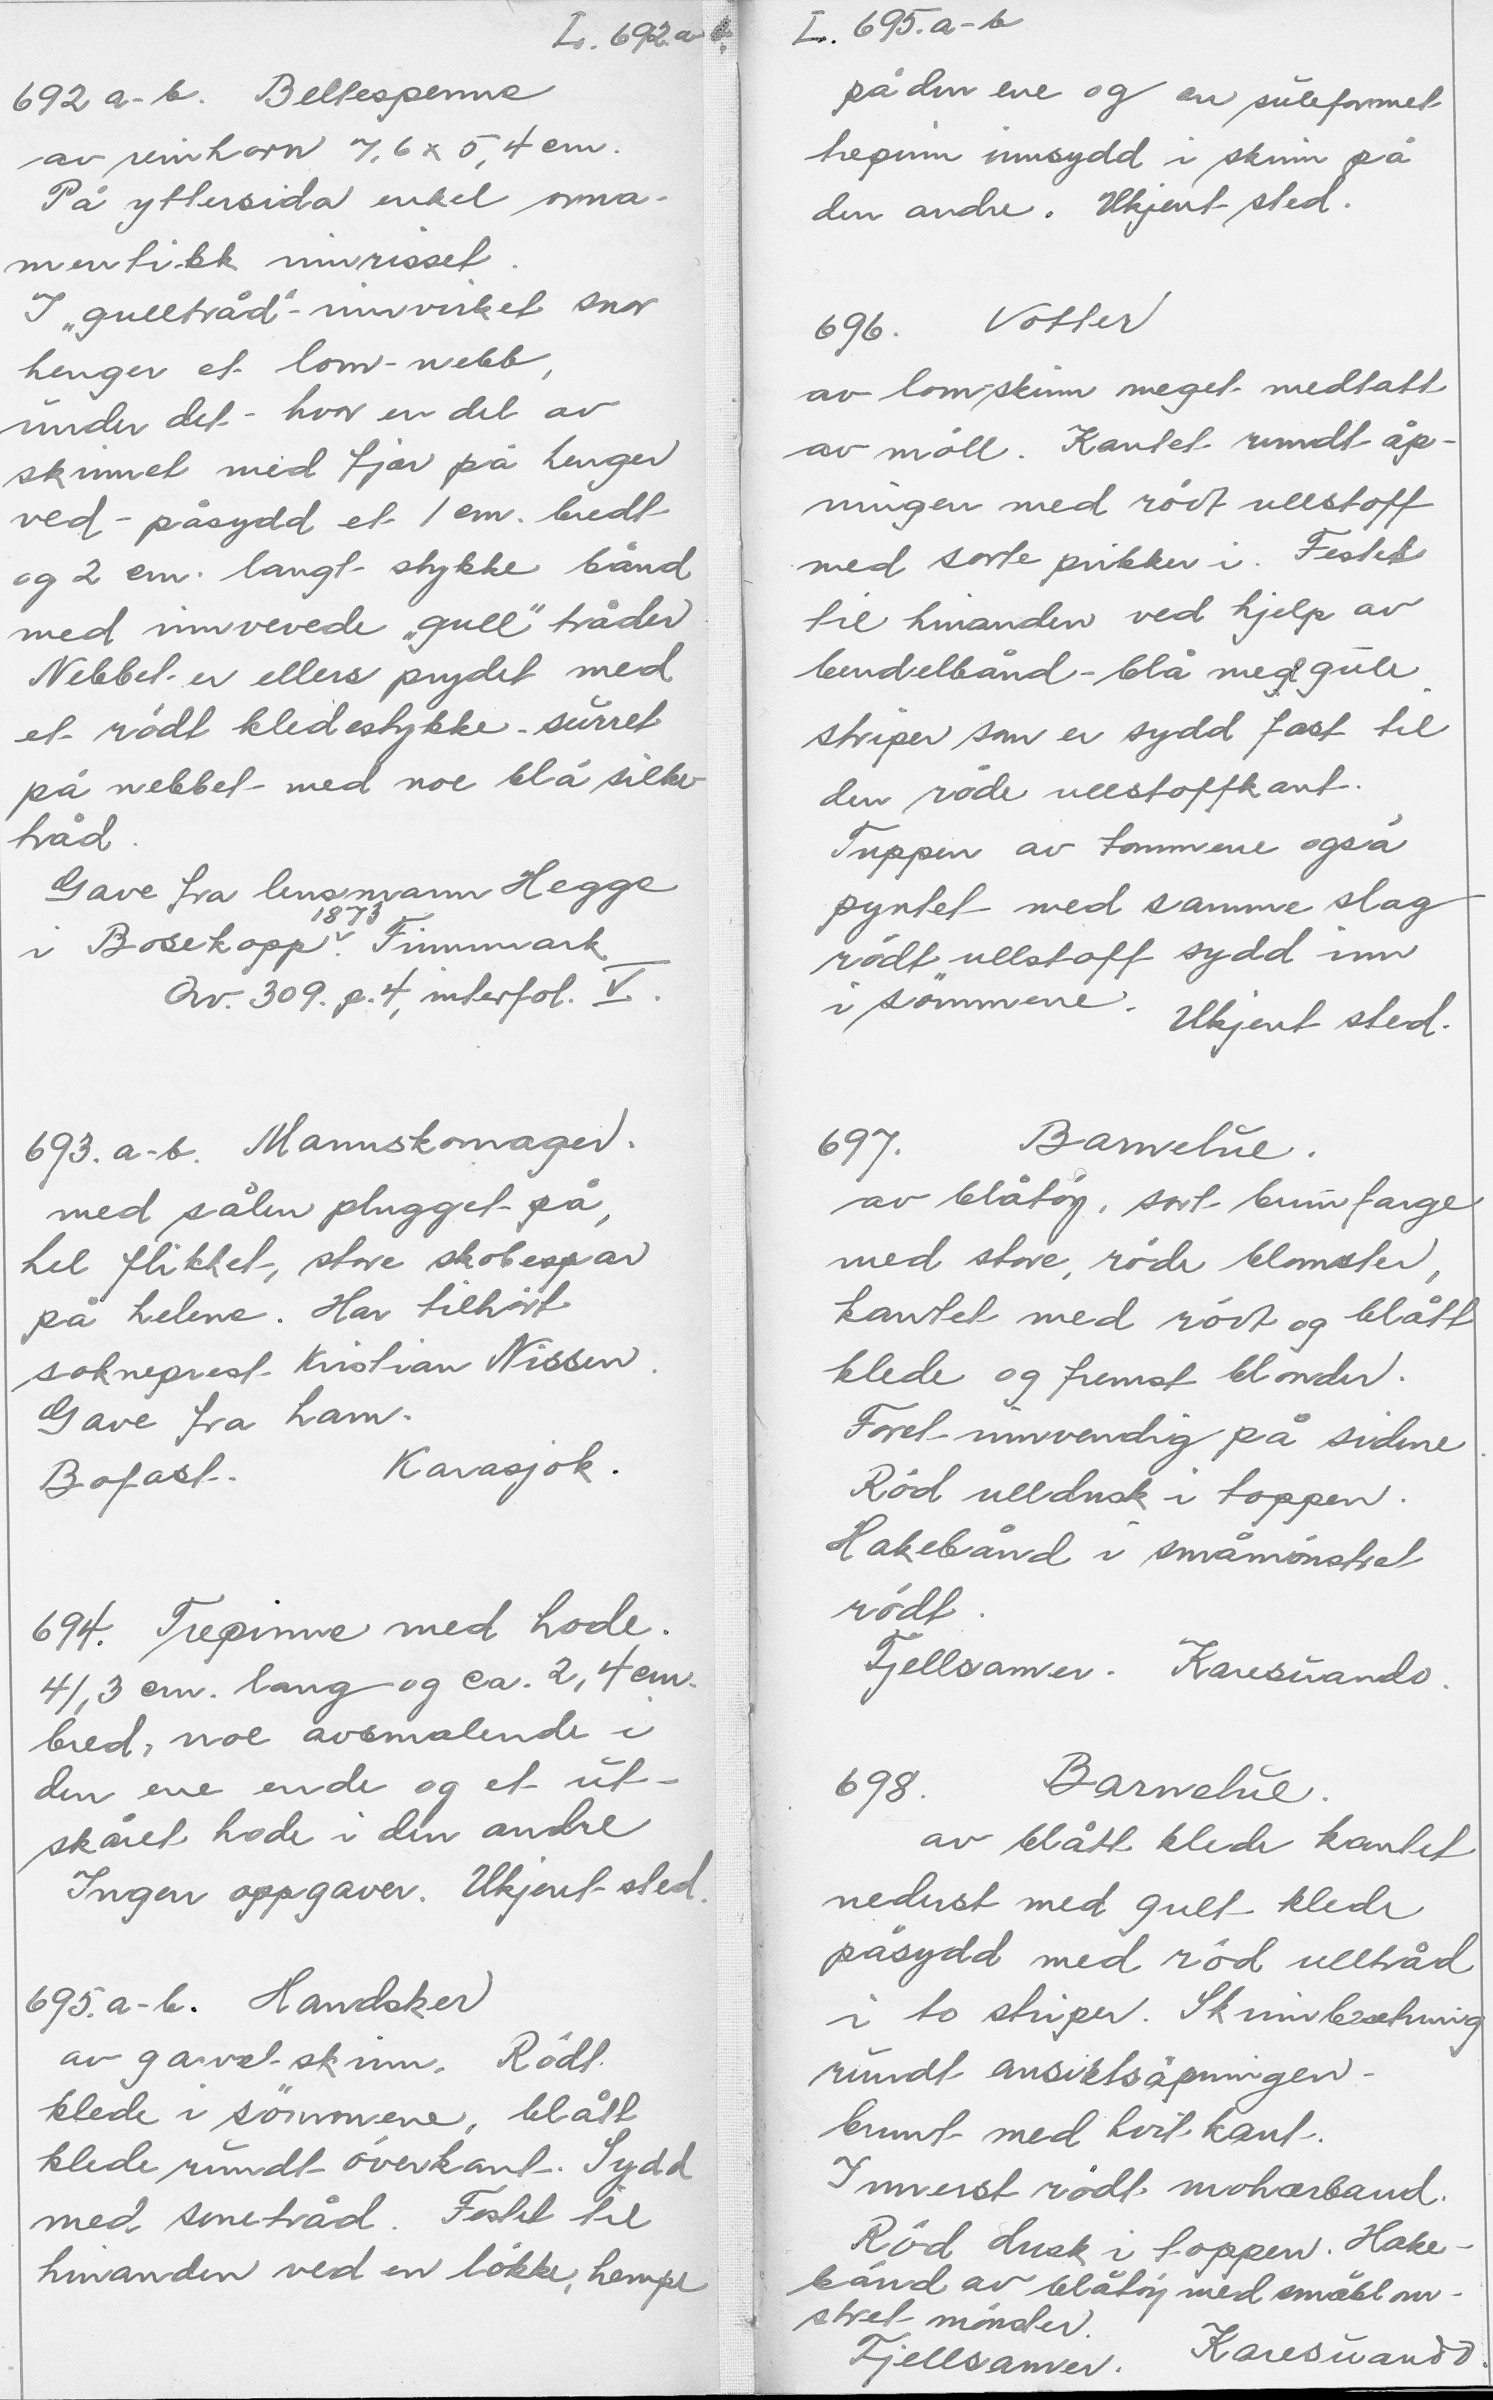 L. 692.a-b.
692 a-b. Beltespenne
av reinhorn 7,6 x 5,4 cm.
På yttersida enkel orna-
mentikk innrisset.
I „gulltråd"-innvirket snor
henger et lom-nebb,
under det - hvor en del av
skinnet med fjær på henger
ved - påsydd et 1 cm. bredt
og 2 cm. langt stykke bånd
med innvevede „gull" tråder
Nebbet er ellers prydet med
et rødt kledestykke - surret
på nebbet med noe blå silke-
tråd.
Gave fra lensmann Hegge
i Bosekopp 1873. Finnmark
Arv. 309. p. 4, interfol. V.
693. a-b. Mannskomager.
med sålen plugget på,
hel flikket, store skobespar
på helene. Har tilhørt
sokneprest Kristian Nissen.
Gave fra ham.
Bofast. Karasjok.
694. Trepinne med hode.
41,3 cm. lang og ca. 2,4 cm.
bred, noe avsmalende i
den ene ende og et ut-
skåret hode i den andre
Ingen oppgaver. Ukjent sted.
695. a-b. Handsker
av garvet skinn. Rødt
klede i sømmene, blått
klede rundt overkant. Sydd
med senetråd. Festet til
hinanden ved en løkke, hempe
L. 695. a-b
på den ene og en sūleformet
trepinn innsydd i skinn på
den andre. Ukjent sted.
696. Votter
av lomskinn meget medtatt
av møll. Kantet rundt åp-
ningen med rødt ullstoff
med sorte prikker i. Festet
til hinanden ved hjelp av
bendelbånd - blå med gule
striper som er sydd fast til
den røde ullstoffkant.
Tuppen av tommene også
pyntet med samme slag
rødt ullstoff sydd inn
i sømmene. Ukjent sted.
697. Barnelue.
av blåtøy, sort bunnfarge
med store, røde blomster,
kantet med rødt og blått
klede og fremst blonder.
Foret innvendig på sidene.
Rød ulldusk i toppen.
Hakebånd i småmønstret
rødt.
Fjellsamer. Karesuando.
698. Barnelue.
av blått klede kantet
nederst med gult klede
påsydd med rød ulltråd
i to striper. Skinnbesetning
rundt ansiktsåpningen -
brunt med hvit kant.
Innerst rødt mohærband.
Rød dusk i toppen. Hake-
bånd av blåtøy med småblom-
stret mønster.
Fjellsamer. Karesuando.